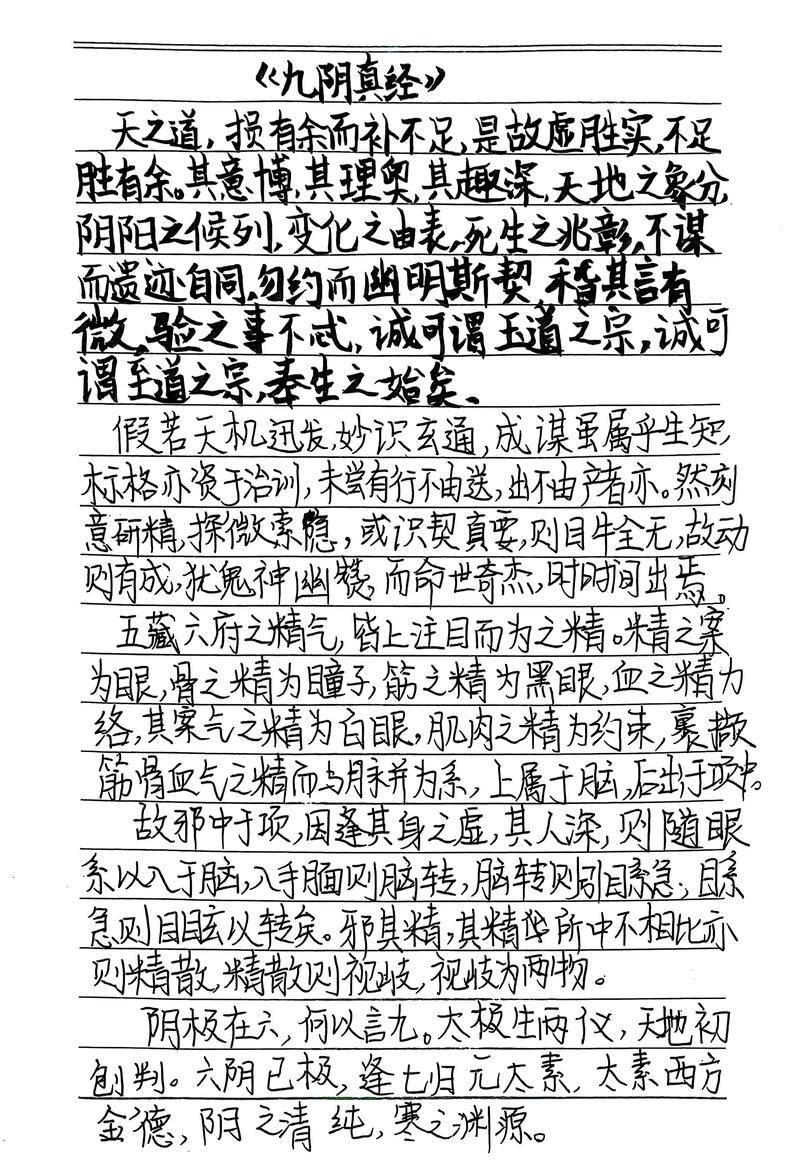 《九阴真经》
天之道，损有余而补不足，是故虚胜实，不足
胜有余。其意博，其理奥，其趣深，天地之象分，
阴阳之候列，变化之由表，死生之兆彰，不谋
而遗迹自同，勿约而幽明斯契，稽其言有
微，验之事不忒，诚可谓王道之宗，诚可
谓至道之宗，奉生之始矣、
假若天机迅发，妙识玄通，成谋虽属乎生知，
标格亦资于治训，未尝有行不由送，出不由产者亦。然刻
意研精，探微索隐，或识契真要，则目牛全无，故动
则有成，犹鬼神幽赞，而命世奇杰，时时间出焉。
五藏六府之精气，皆上注目而为之精。精之窠
为眼，骨之精为瞳子，筋之精为黑眼，血之精力
络，其窠气之精为白眼，肌肉之精为约束，裹撷
筋骨血气之精而与脉并为系，上属于脑，后出于项中。
故邪中于项，因逢其身之虚，其人深，则随眼
系以入于脑，入于脑则脑转，脑转则引目系急，目系
急则目眩以转矣。邪其精，其精所中不相比亦
则精散，精散则视歧，视歧为两物。
阴极在六，何以言九。太极生两仪，天地初
刨判。六阴已极，逢七归元太素，太素西方
金德，阴之清纯，寒之渊源。